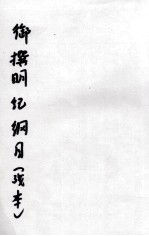 御撰明纪纲目(残本)